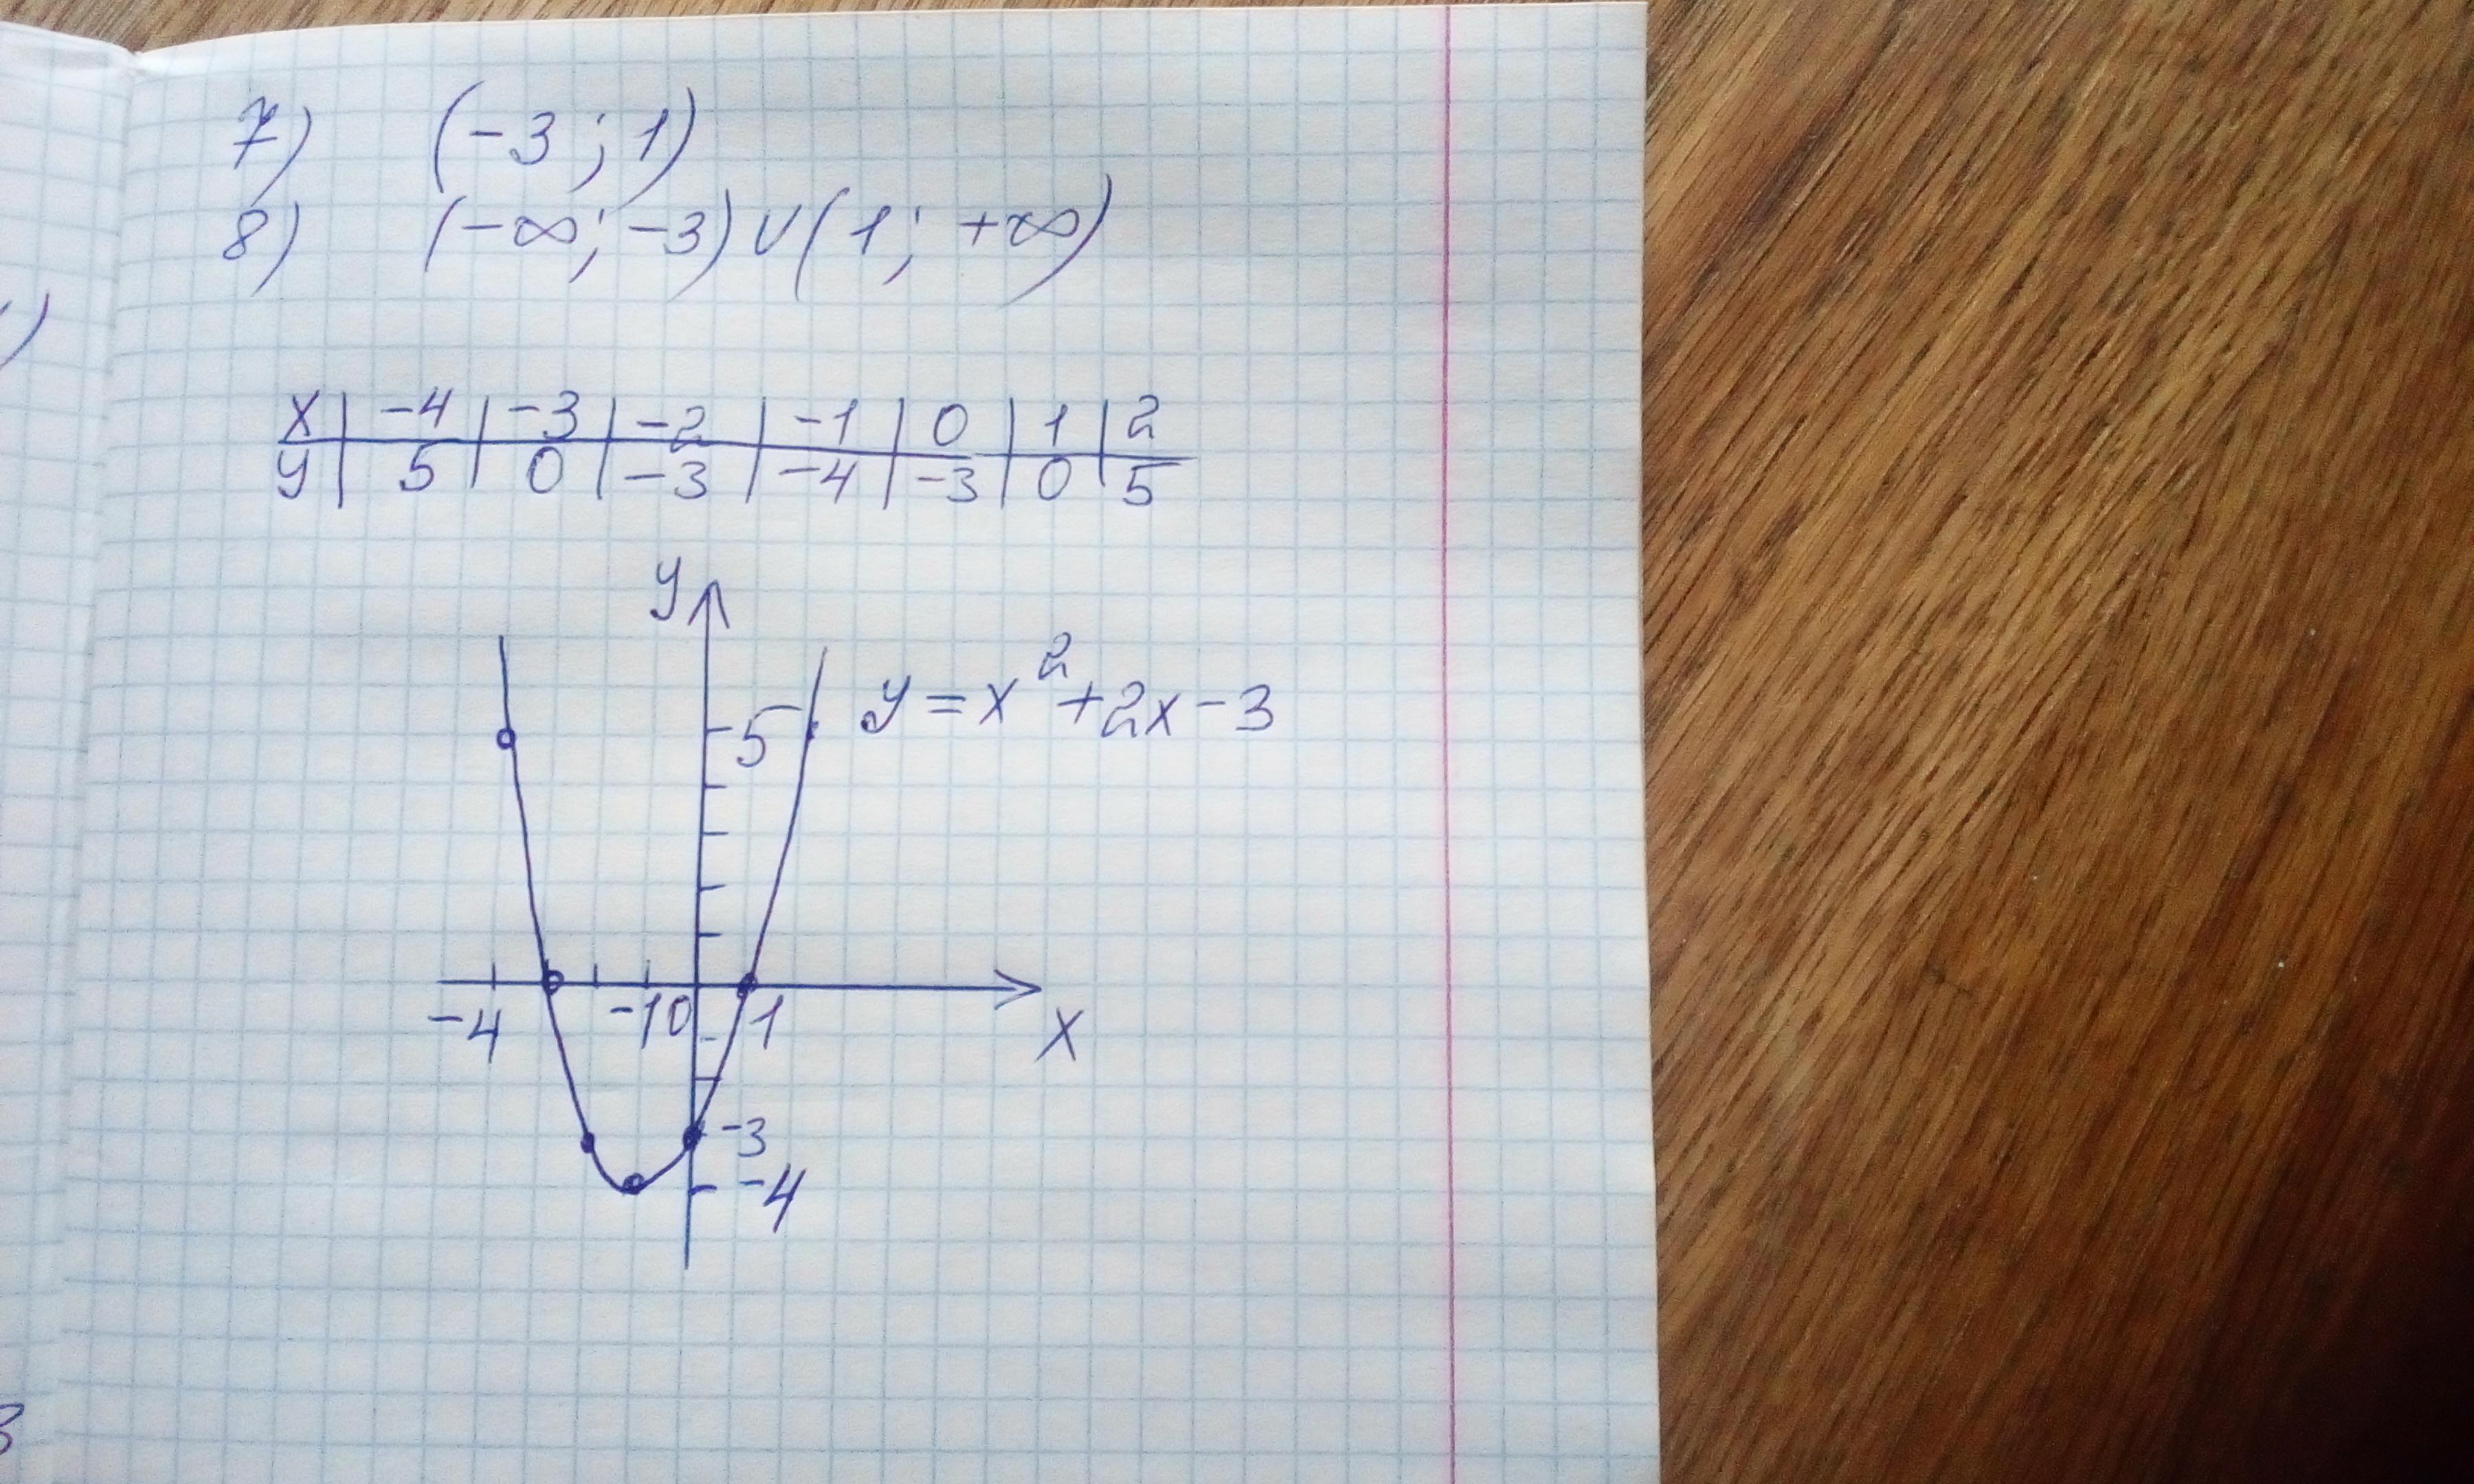 7) (-3 ; 1)
8) (-∞; -3) ∪ (1; +∞)
x | -4 | -3 | -2 | -1 | 0 | 1 | 2
y | 5 | 0 | -3 | -4 | -3 | 0 | 5
y
y = x² + 2x - 3
5
-4 -1 0 1 x
-3
-4